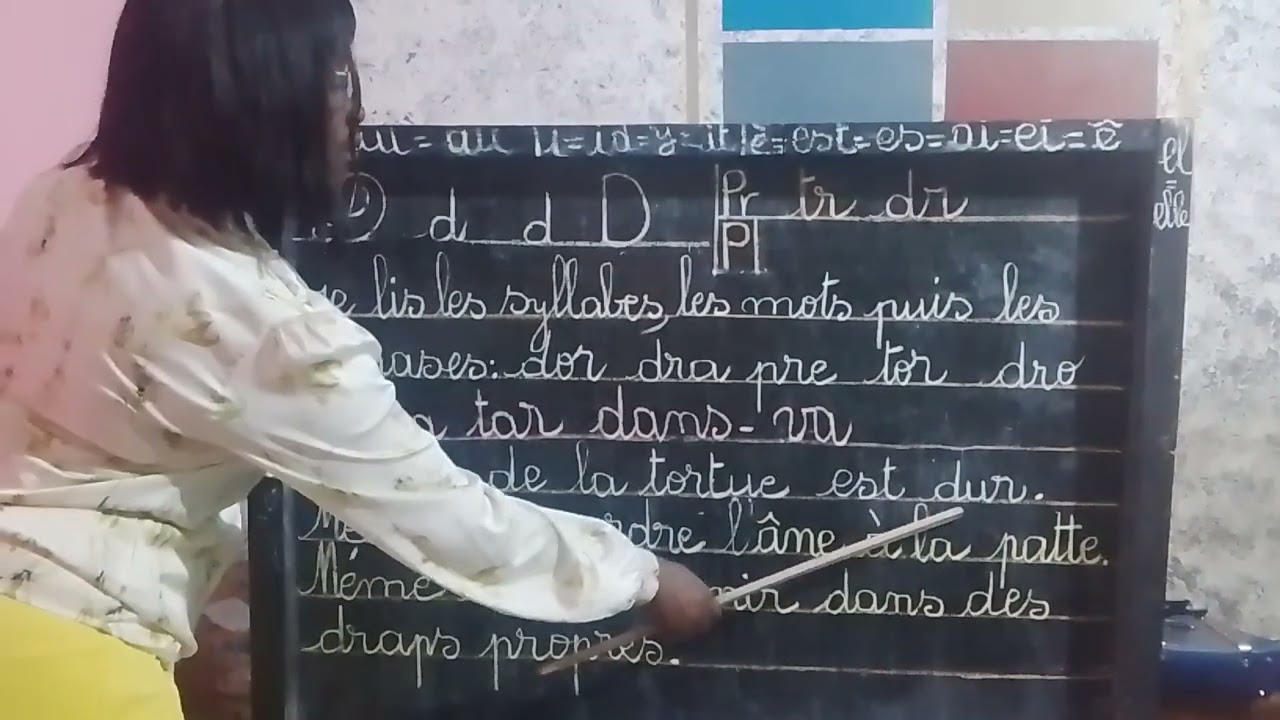 = au u = id = y = it è = est = es = ai = ei = ê
el = elle
d d D Pr tr dr
P
lis les syllabes, les mots puis les
dor dra pre tor dro
tar dans - va
de la tortue est dur.
l'âne à la patte.
Mémé dans des
draps propres.